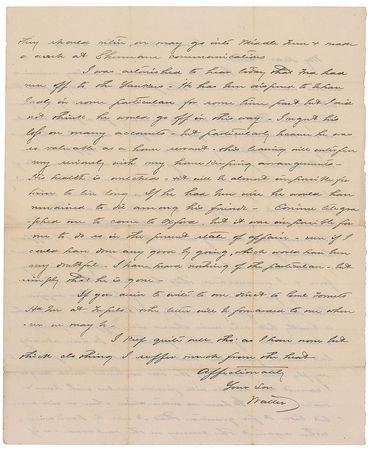 they should retire or may go into Middle Tenn & make
a dash at Shermans communications
I was astonished to hear today that Ira had
run off to the Yankees. He has been disposed to behave
badly in some particulars for some time past but I did
not think he would go off in this way. I regret his
loss on many accounts - but particularly because he was
so valuable as a house servant. His leaving will interfere
my seriously with my housekeeping arrangements -
His health is wretched & it will be almost impossible for
him to live long. If he had been wise he would have
remained to die among his friends - Corinne telegra
phed me to come to Oxford, but it was impossible for
me to do so in the present state of affairs - even if I
could have done any good by going, which would have been
my doubtful. I have heard nothing of the particulars - but
simply that he is gone -
If you desire to write to me direct to
Hd Qrs at the letter will be forwarded to me wher
ever I may be
I keep quite well tho' as I have none but
thick clothing I suffer much from the heat
Affectionately
Your Son
Walter